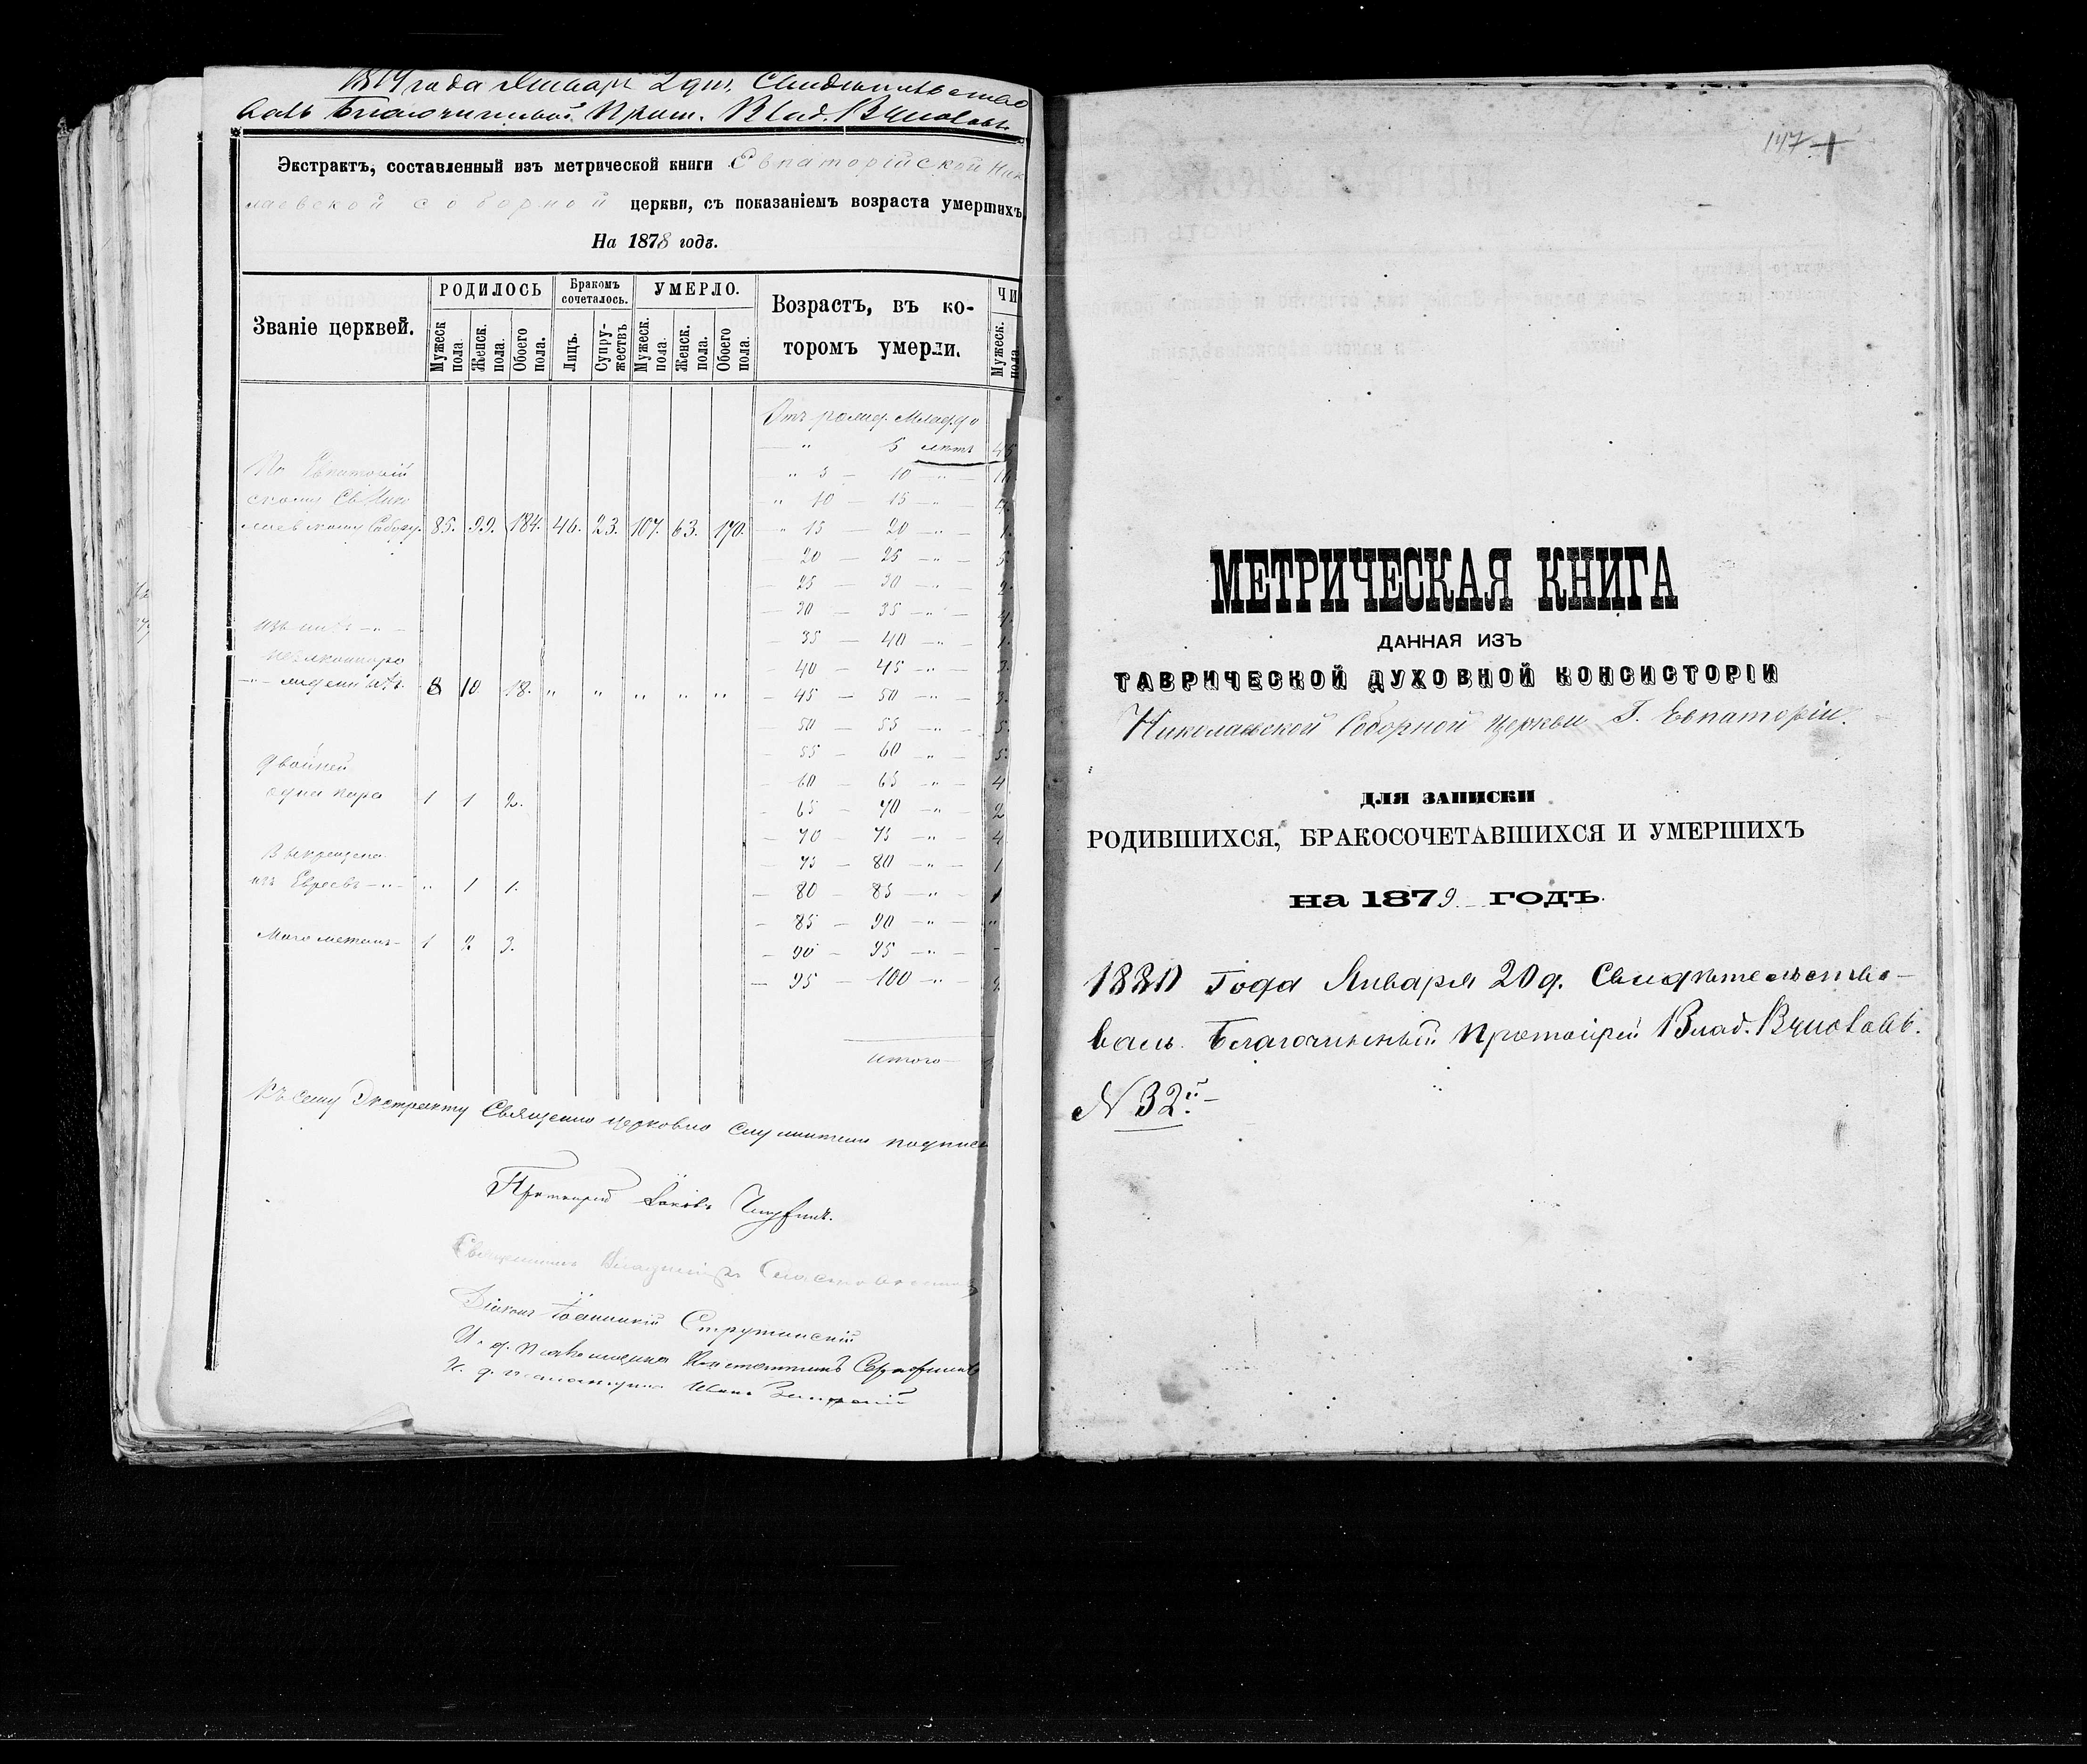 1879 года Января 2 дня, Свидѣтельство
валъ Благочинный Прот. Влад.
Экстрактъ, составленный изъ метрической книги Евпаторійской Нико
лаевской соборной церкви, съ показаніемъ возраста умершихъ
На 1878 годъ.
Званіе церквей.
РОДИЛОСЬ
Мужеск пола.
Женск. пола.
Обоего пола.
Бракомъ сочеталось.
Лицъ.
Супружествъ
УМЕРЛО.
Мужеск. пола.
Женск. пола.
Обоего пола.
Возрастъ, въ ко-
торомъ умерли.
ЧИ
Мужеск. пола.
Отъ рожд. Млад. до
— " 5 лѣтъ 45
" 5 — 10 — " —
" 10 — 15 — " — 4.
" 15 — 20 — " — 1.
— 20 — 25 — " — 5.
— 25 — 30 — " 2.
— 30 — 35 — " 4.
— 35 — 40 — " 1.
— 40 — 45 — " — 3.
— 45 — 50 — " — 3.
50 — 55 — " — 5.
— 55 — 60 — " — 5.
— 60 — 65 — " — 4
— 65 — 70 — " — 2
— 70 — 75 — " — 4
— 75 — 80 — " — 1
— 80 — 85 — " — 1
— 85 — 90 — " — "
— 90 — 95 — " — -
— 95 — 100 — " —
итого —
По Евпаторій
скому Св. Нико
лаевскому Собору. 85. 99. 184. 46. 23. 107. 63. 170.
изъ нихъ — " —
незаконноро
— " — жденныхъ. 8 10 18. " " " " "
Двойней
одна пара 1 1 2.
изъ Евреевъ — " — " 1 1.
Магометанъ — 1 2 3.
Къ сему Экстракту Священно церковно служители подписа
Протоіерей Іаковъ
Священникъ
Діаконъ Іоанникій Струтинскій
И. д. псаломщика Константинъ
И. д. псаломщика Иванъ
147
МЕТРИЧЕСКАЯ КНИГА
ДАННАЯ ИЗЪ
ТАВРИЧЕСКОЙ ДУХОВНОЙ КОНСИСТОРІИ
Николаевской Соборной церкви Г. Евпаторіи.
ДЛЯ ЗАПИСКИ
РОДИВШИХСЯ, БРАКОСОЧЕТАВШИХСЯ И УМЕРШИХЪ
на 1879 годъ.
1880 Года Января 20 д. Свидѣтельство-
валъ Благочинный Протоіерей Влад.
N 32й —